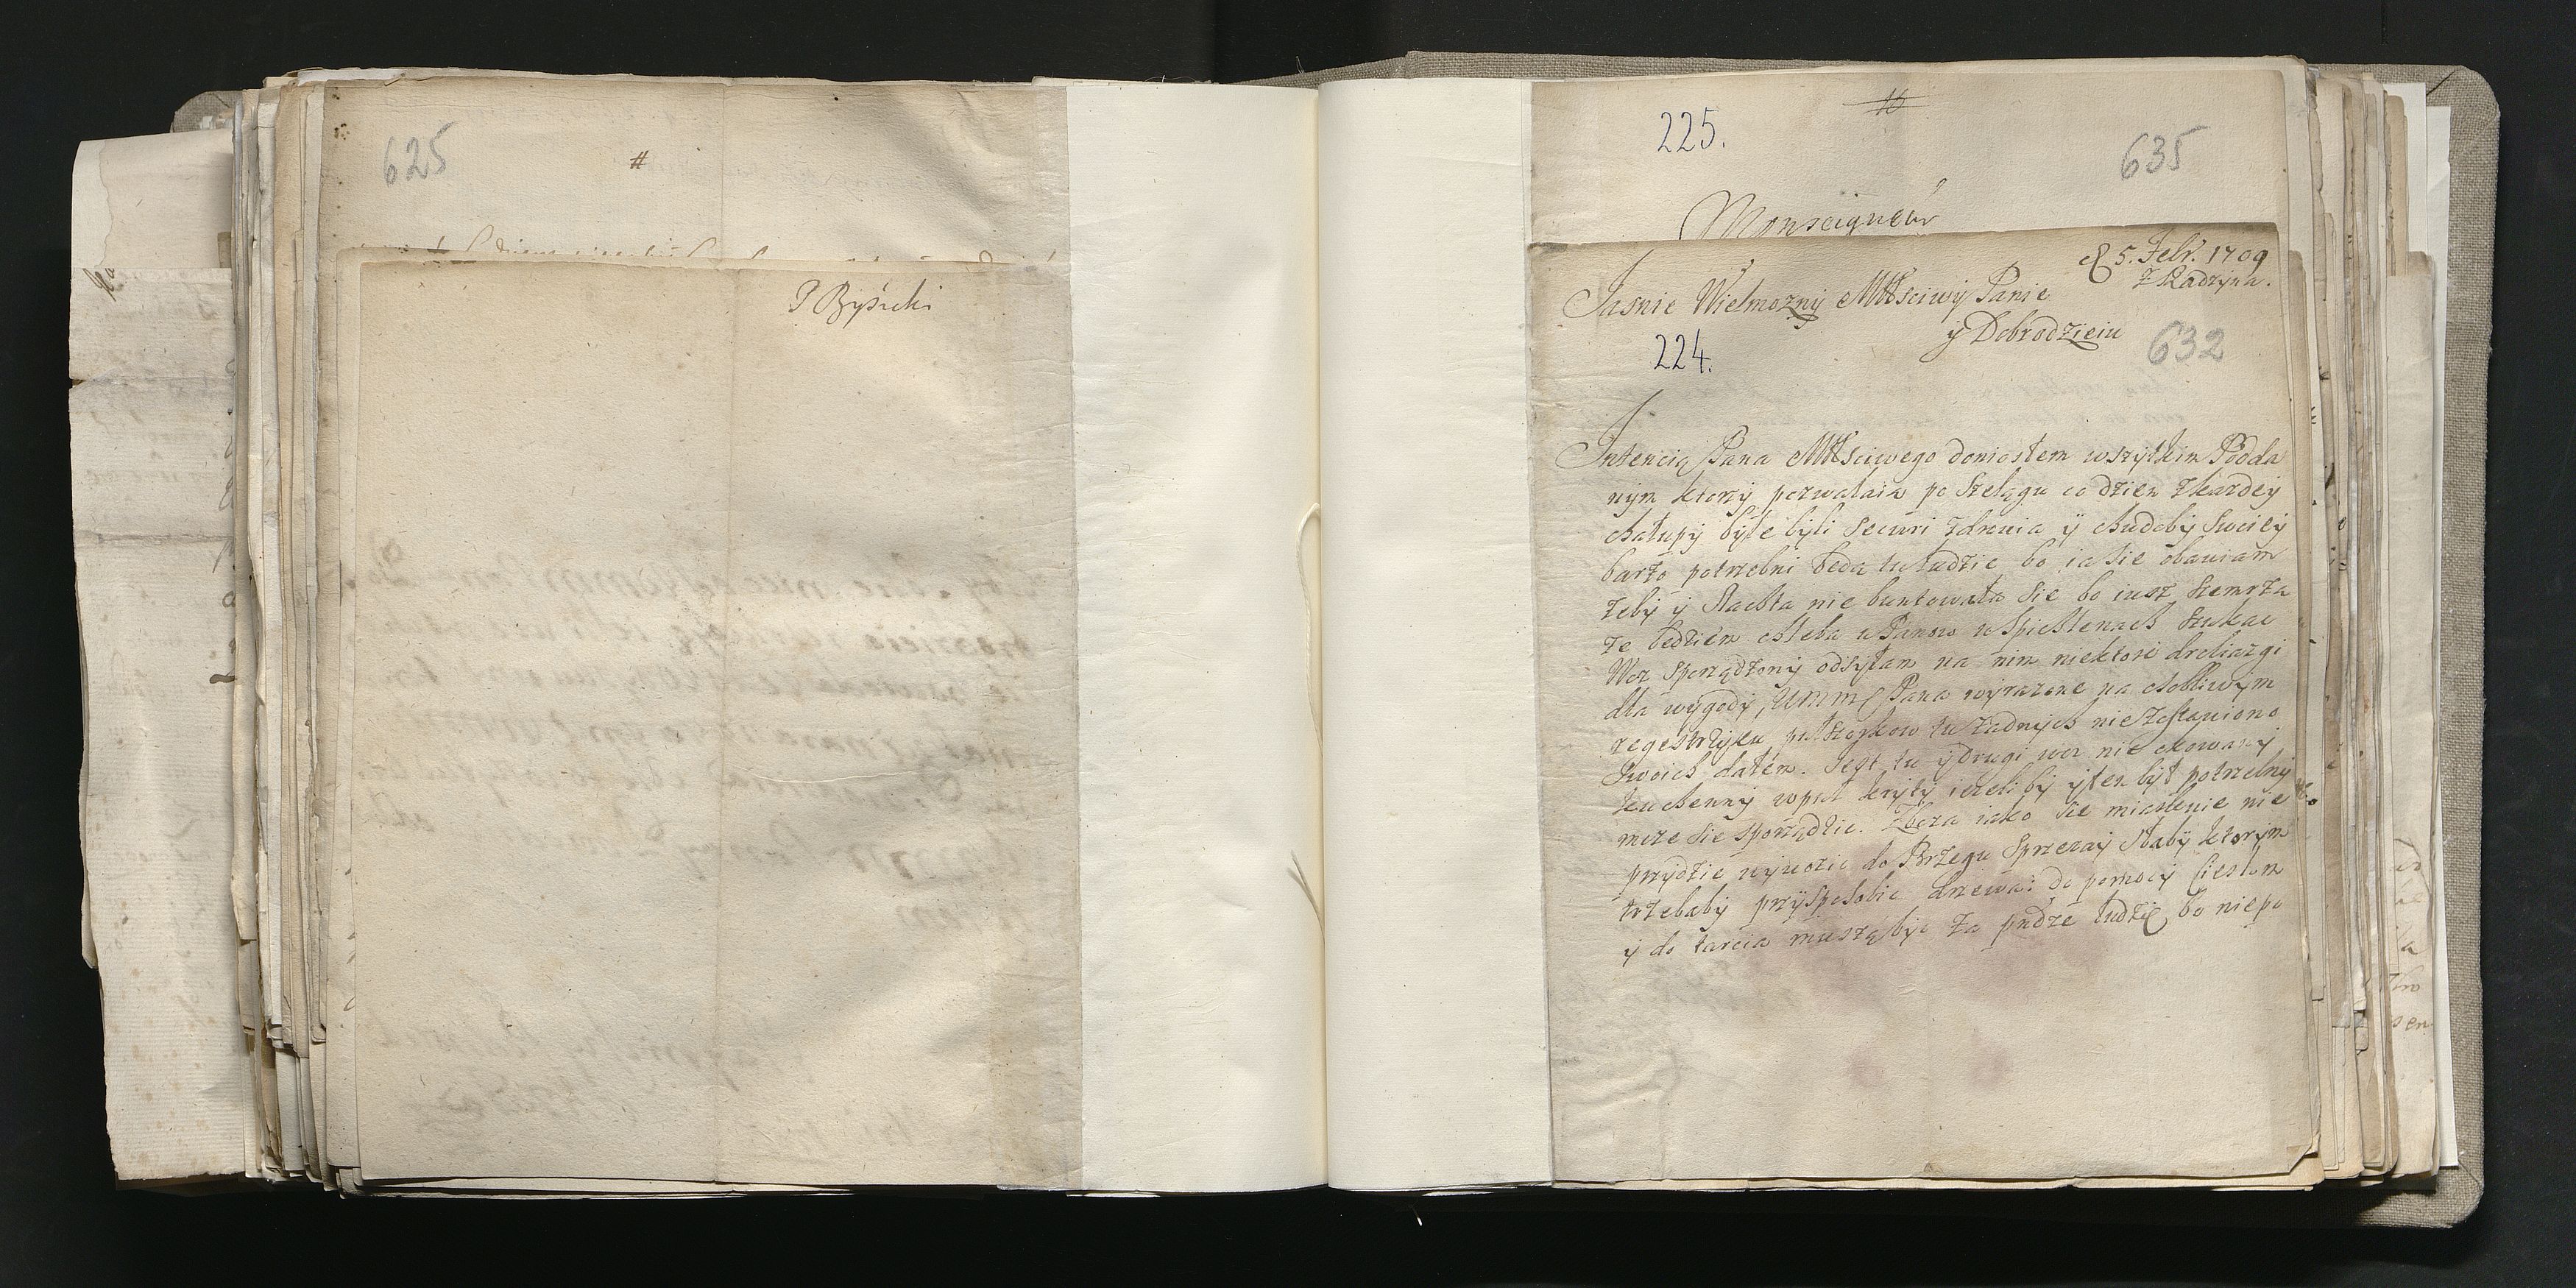 625
#
P Byśicki
16
225.
635
Monseigneur
d 5. Febr. 1709
z Radzyna.
Jasnie Wielmozny MMsciwy Panie
y Dobrodzieiu
224.
632
Intencią Pana MMsciwego doniosłem wszytkim Podda
nym ktorzy pozwalaią po szelągu co dzien z kazdey
chałupy byle byli securi zdrowia y chudoby swoiey
barzo potrzebni beda tu ludzie bo ia sie obawiam
zeby y slachta nie buntowała sie bo iusz szemrza
ze bedziem chleba u Panow w spichlerzach szukac
Woz sporządzony odsyłam na nim niektore drobiazgi
dla wygody, UMM Pana wyrazone na osobliwym
regestrzyku puszorkow tu zadnych nie zostawiono
swoich dałem. Jest tu y drugi woz nie okowany
kuchenny wpuł kryty iezeli by y ten był potrzebny
moze sie sporządzic. Zboza iako sie miarkuie nie
przydzie wywozic do Brzegu sprzezay słaby ktorym
trzebaby przysposobic drzewa: do pomocy Cieslom
y do tarcia muszą byc za pndze ludzie bo niepo